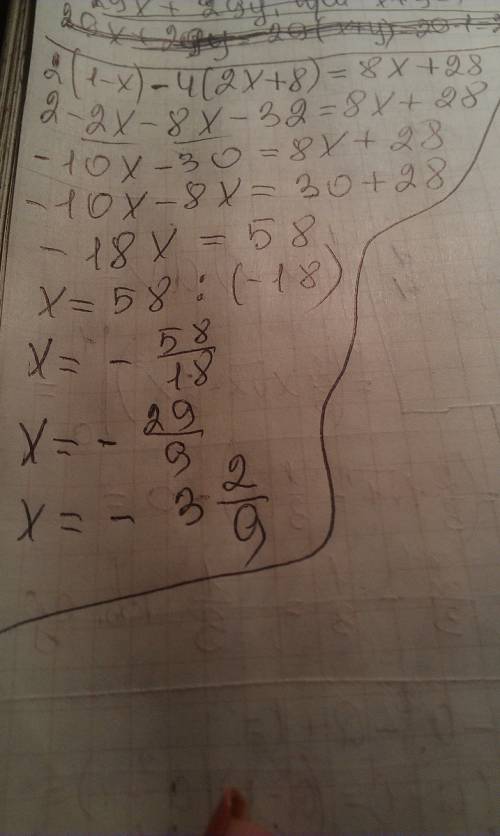 2(1-x)-4(2x+8)=8x+28
2-2x-8x-32=8x+28
-10x-30=8x+28
-10x-8x=30+28
-18x=58
x=58:(-18)
x=-58/18
x=-29/9
x=-3 2/9